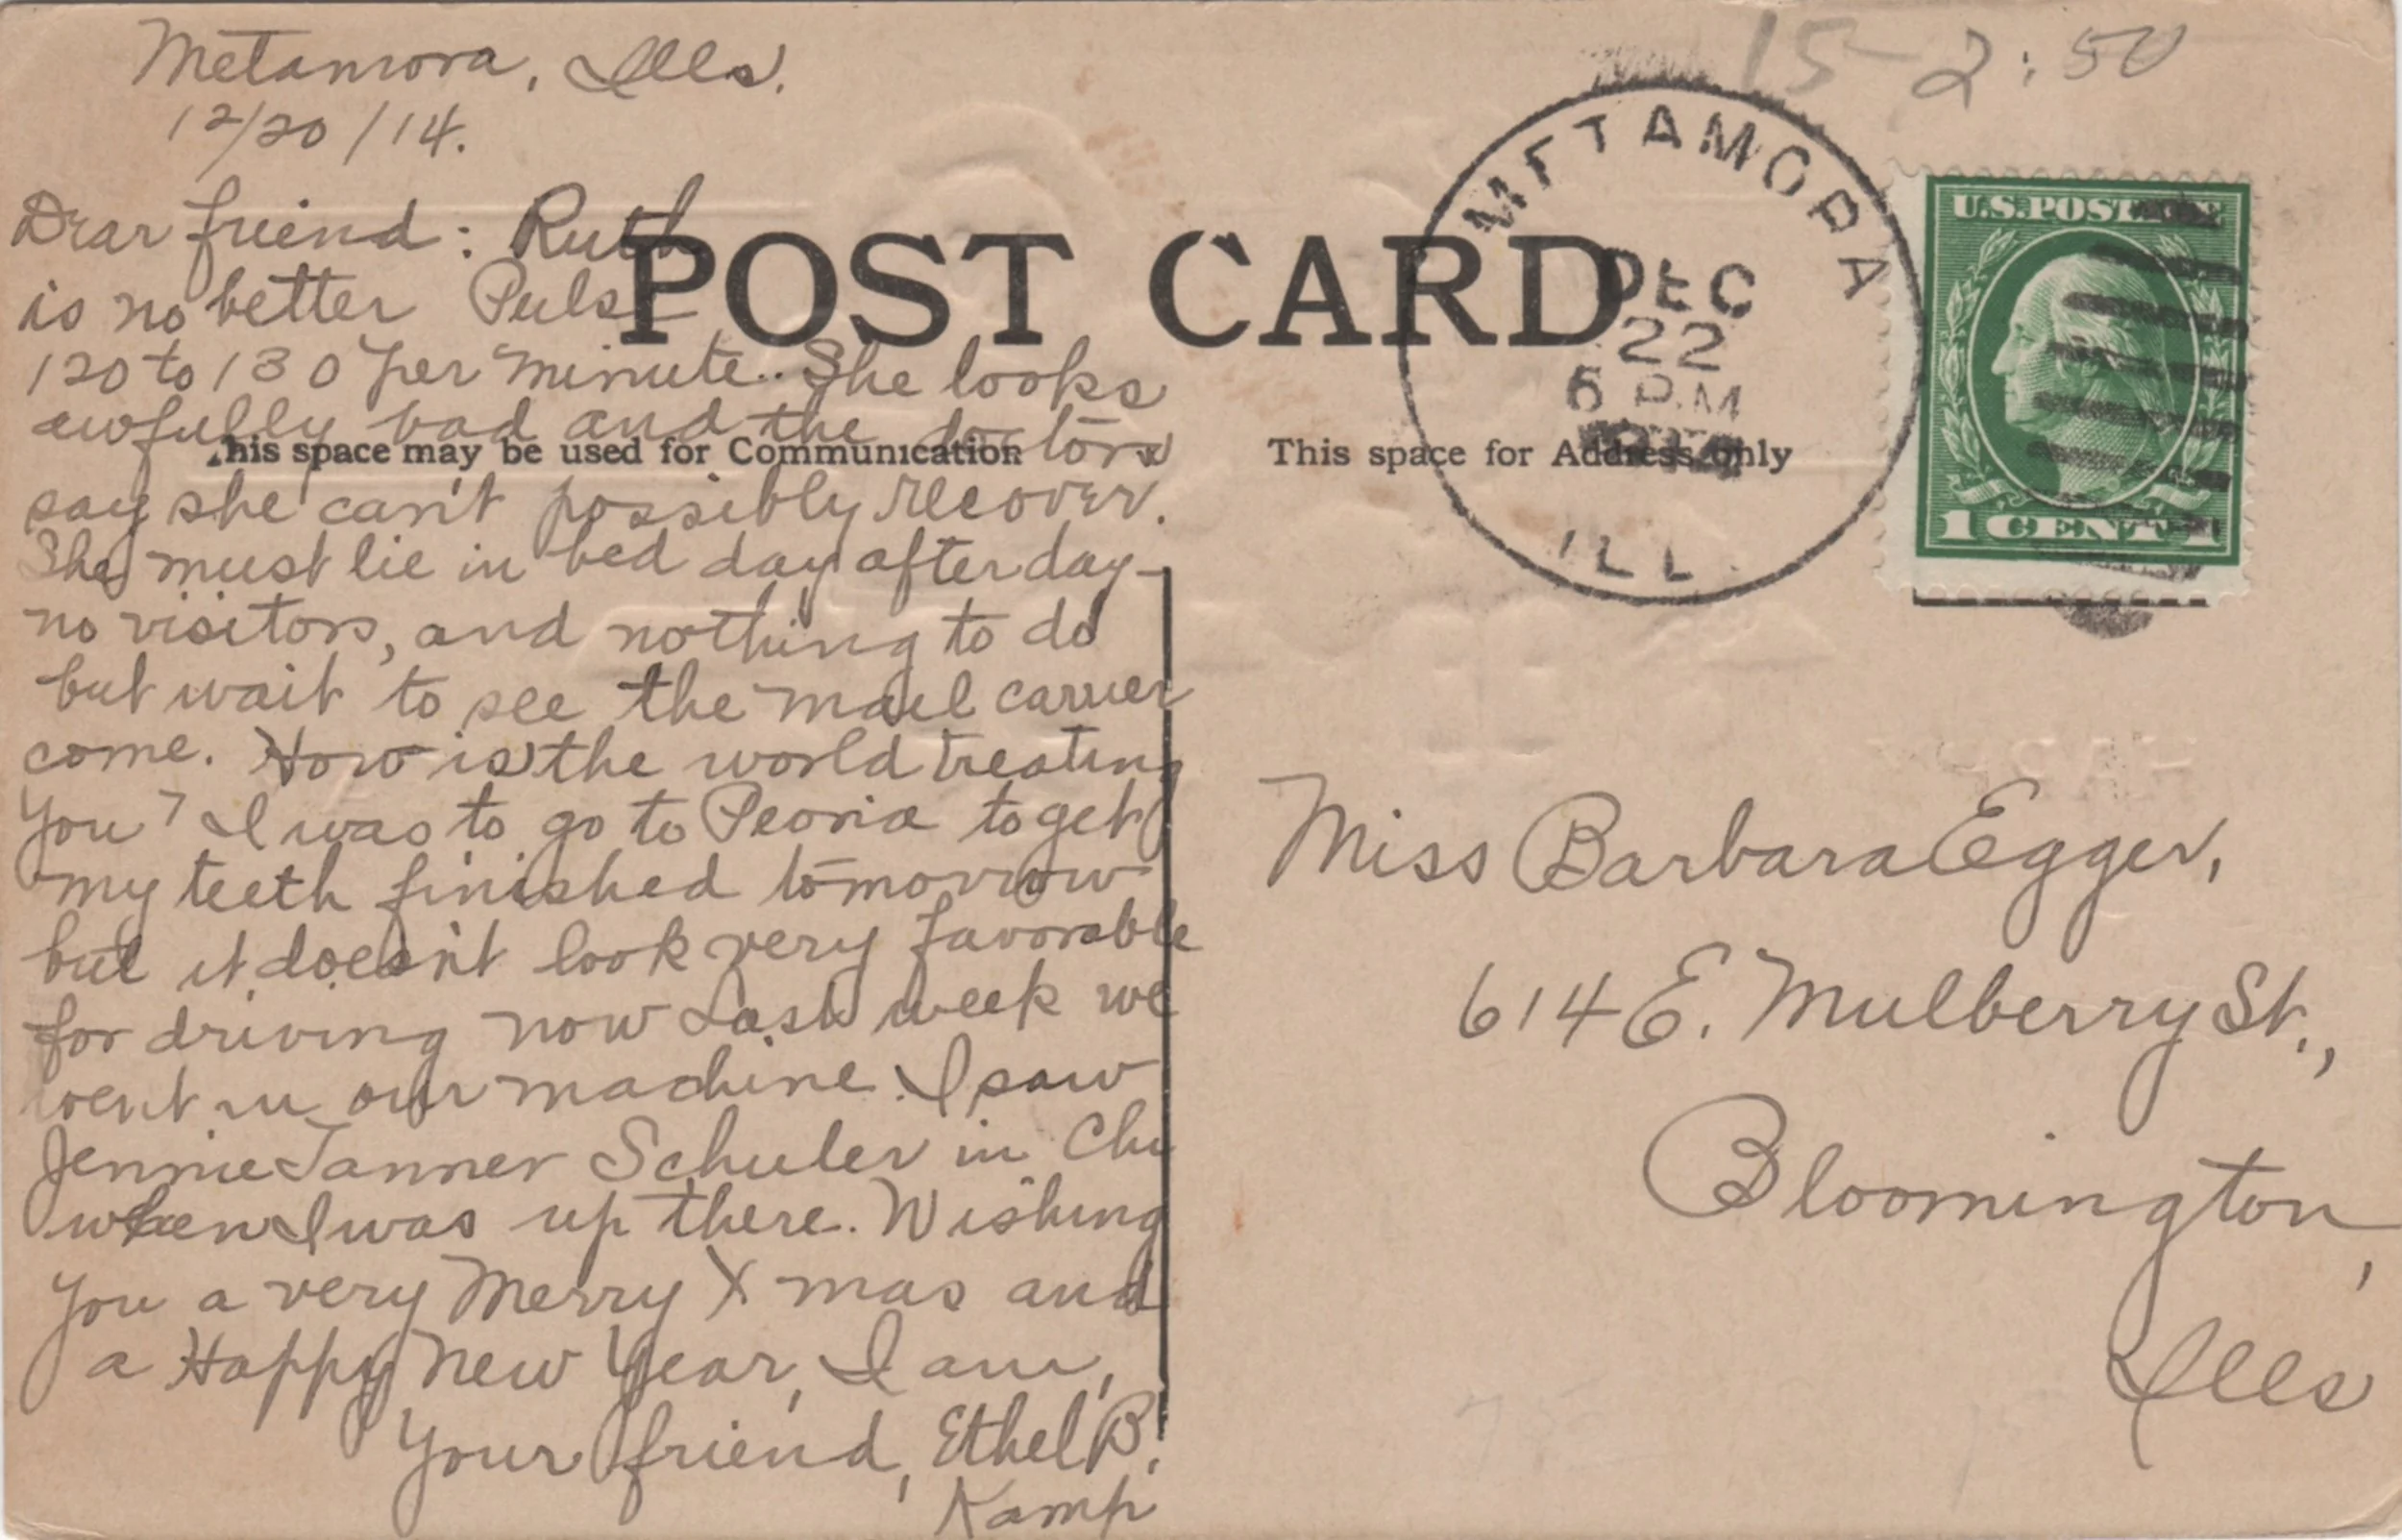 Metamora, Ills.
12/20/14.
Dear friend: Ruth
is no better Pulse
120 to 130 per minute. She looks
awfully bad and the doctors
say she can't possibly recover.
She must lie in bed day after day —
no visitors, and nothing to do
but wait to see the mail carrier
come. How is the world treating
you? I was to go to Peoria to get
my teeth finished tomorrow
but it doesn't look very favorable
for driving now Last week we
went in our machine. I saw
Jennie Tanner Schuler in Chi
when I was up there. Wishing
you a very Merry Xmas and
a Happy New Year, I am,
Your friend, Ethel B.
Kamp
POST CARD
This space may be used for Communication
This space for Address only
15- 2:50
METAMORA
DEC
22
6 P.M
ILL.
U.S. POSTAGE
1 CENT 1
Miss Barbara Egger,
614 E. Mulberry St.,
Bloomington,
Ills